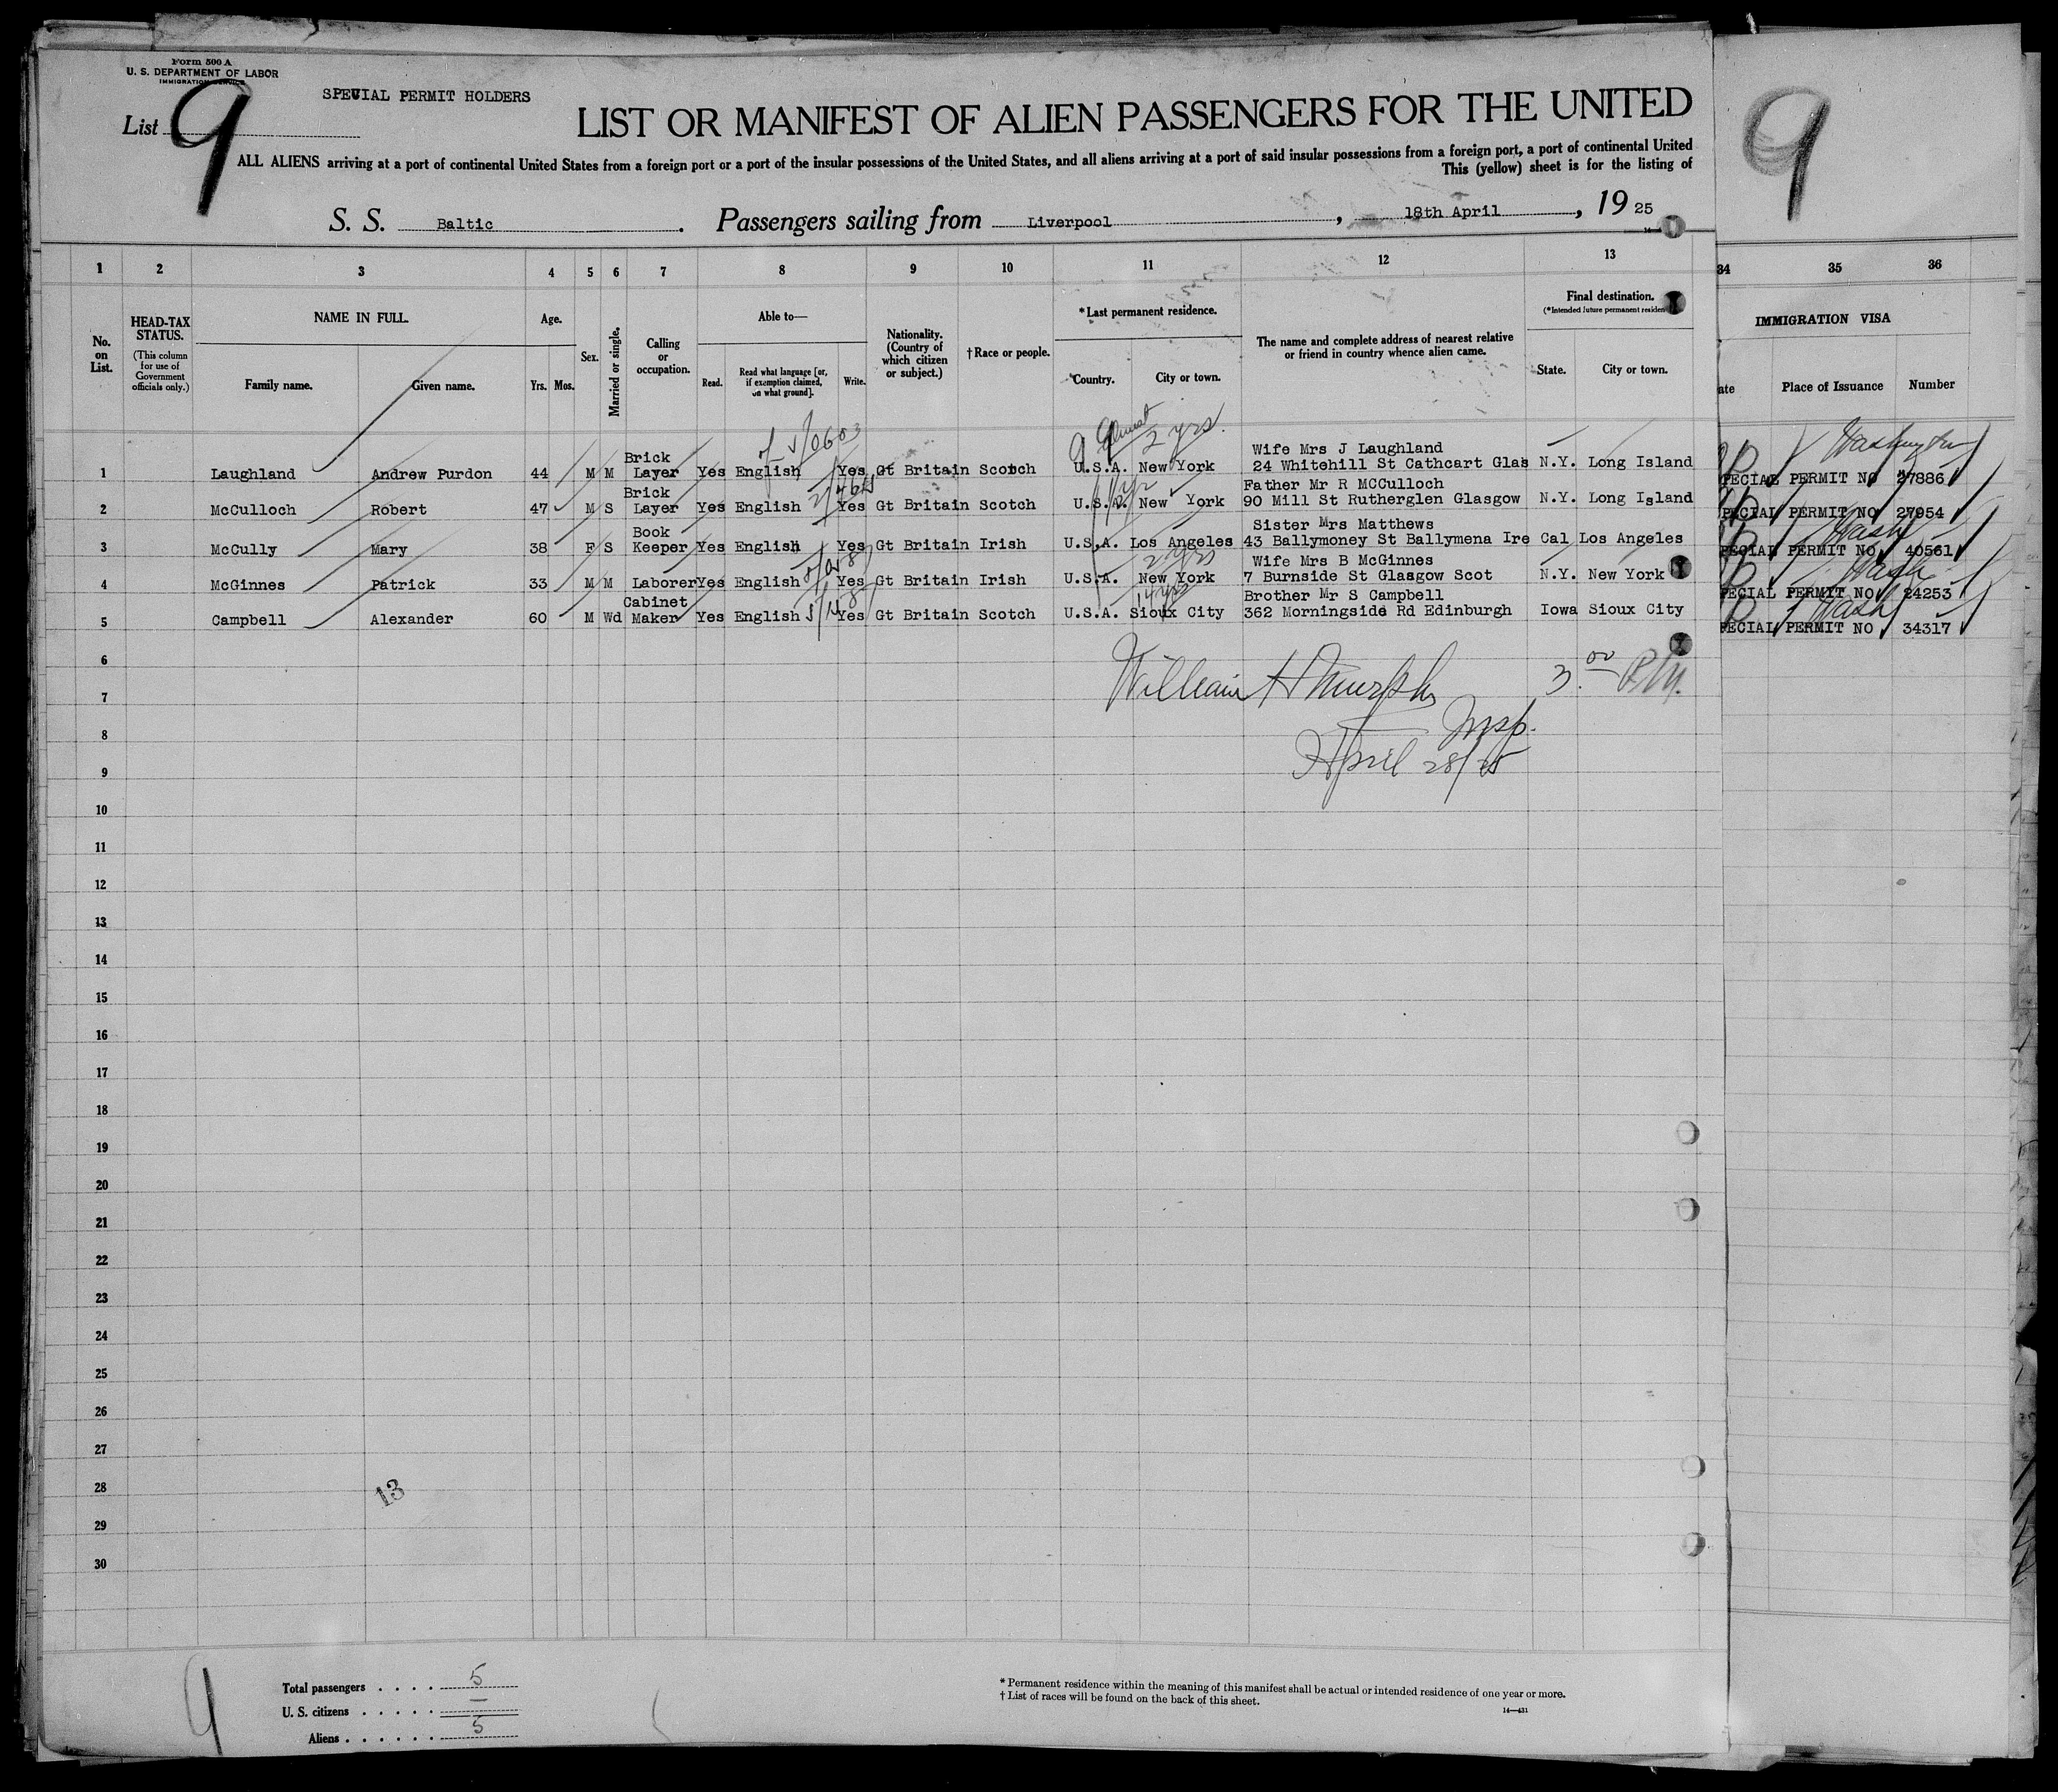 Form 500 A
U. S. DEPARTMENT OF LABOR
IMMIGRATION SERVICE
SPEVIAL PERMIT HOLDERS
List 9
LIST OR MANIFEST OF ALIEN PASSENGERS FOR THE UNITED
9
ALL ALIENS arriving at a port of continental United States from a foreign port or a port of the insular possessions of the United States, and all aliens arriving at a port of said insular possessions from a foreign port, a port of continental United
This (yellow) sheet is for the listing of
S. S. Baltic. Passengers sailing from Liverpool, 18th April, 19 25
1 2 3 4 5 6 7 8 9 10 11 12 13 34 35 36
No. on List.
HEAD-TAX STATUS.
(This column for use of Government officials only.)
NAME IN FULL.
Family name. Given name.
Age.
Yrs. Mos.
Sex.
Married or single.
Calling or occupation.
Able to—
Read. Read what language [or, if exemption claimed, on what ground]. Write.
Nationality. (Country of which citizen or subject.)
†Race or people.
*Last permanent residence.
Country. City or town.
The name and complete address of nearest relative or friend in country whence alien came.
Final destination.
(*Intended future permanent residen
State. City or town.
IMMIGRATION VISA
ate Place of Issuance Number
2 yrs. Washington
1 Laughland Andrew Purdon 44 M M Brick Layer Yes English Yes Gt Britain Scotch U.S.A. New York Wife Mrs J Laughland 24 Whitehill St Cathcart Glas N.Y. Long Island PECIAL PERMIT NO 27886
2 McCulloch Robert 47 M S Brick Layer Yes English Yes Gt Britain Scotch U.S.A. New York Father Mr R MCCulloch 90 Mill St Rutherglen Glasgow N.Y. Long Island PECIAL PERMIT NO 27954
Wash
3 McCully Mary 38 F S Book Keeper Yes English Yes Gt Britain Irish U.S.A. Los Angeles Sister Mrs Matthews 43 Ballymoney St Ballymena Ire Cal Los Angeles PECIAL PERMIT NO 40561
2 yrs Wash
4 McGinnes Patrick 33 M M Laborer Yes English Yes Gt Britain Irish U.S.A. New York Wife Mrs B McGinnes 7 Burnside St Glasgow Scot N.Y. New York PECIAL PERMIT NO 24253
Wash
5 Campbell Alexander 60 M Wd Cabinet Maker Yes English Yes Gt Britain Scotch U.S.A. Sioux City Brother Mr S Campbell 362 Morningside Rd Edinburgh Iowa Sioux City PECIAL PERMIT NO 34317
6
7 William H Murphy 3.00 P.M.
8 Insp.
9 April 28/25
10
11
12
13
14
15
16
17
18
19
20
21
22
23
24
25
26
27
28 13
29
30
9
Total passengers . . . . 5
U. S. citizens . . . . . —
Aliens . . . . . . 5
* Permanent residence within the meaning of this manifest shall be actual or intended residence of one year or more.
† List of races will be found on the back of this sheet.
14—431